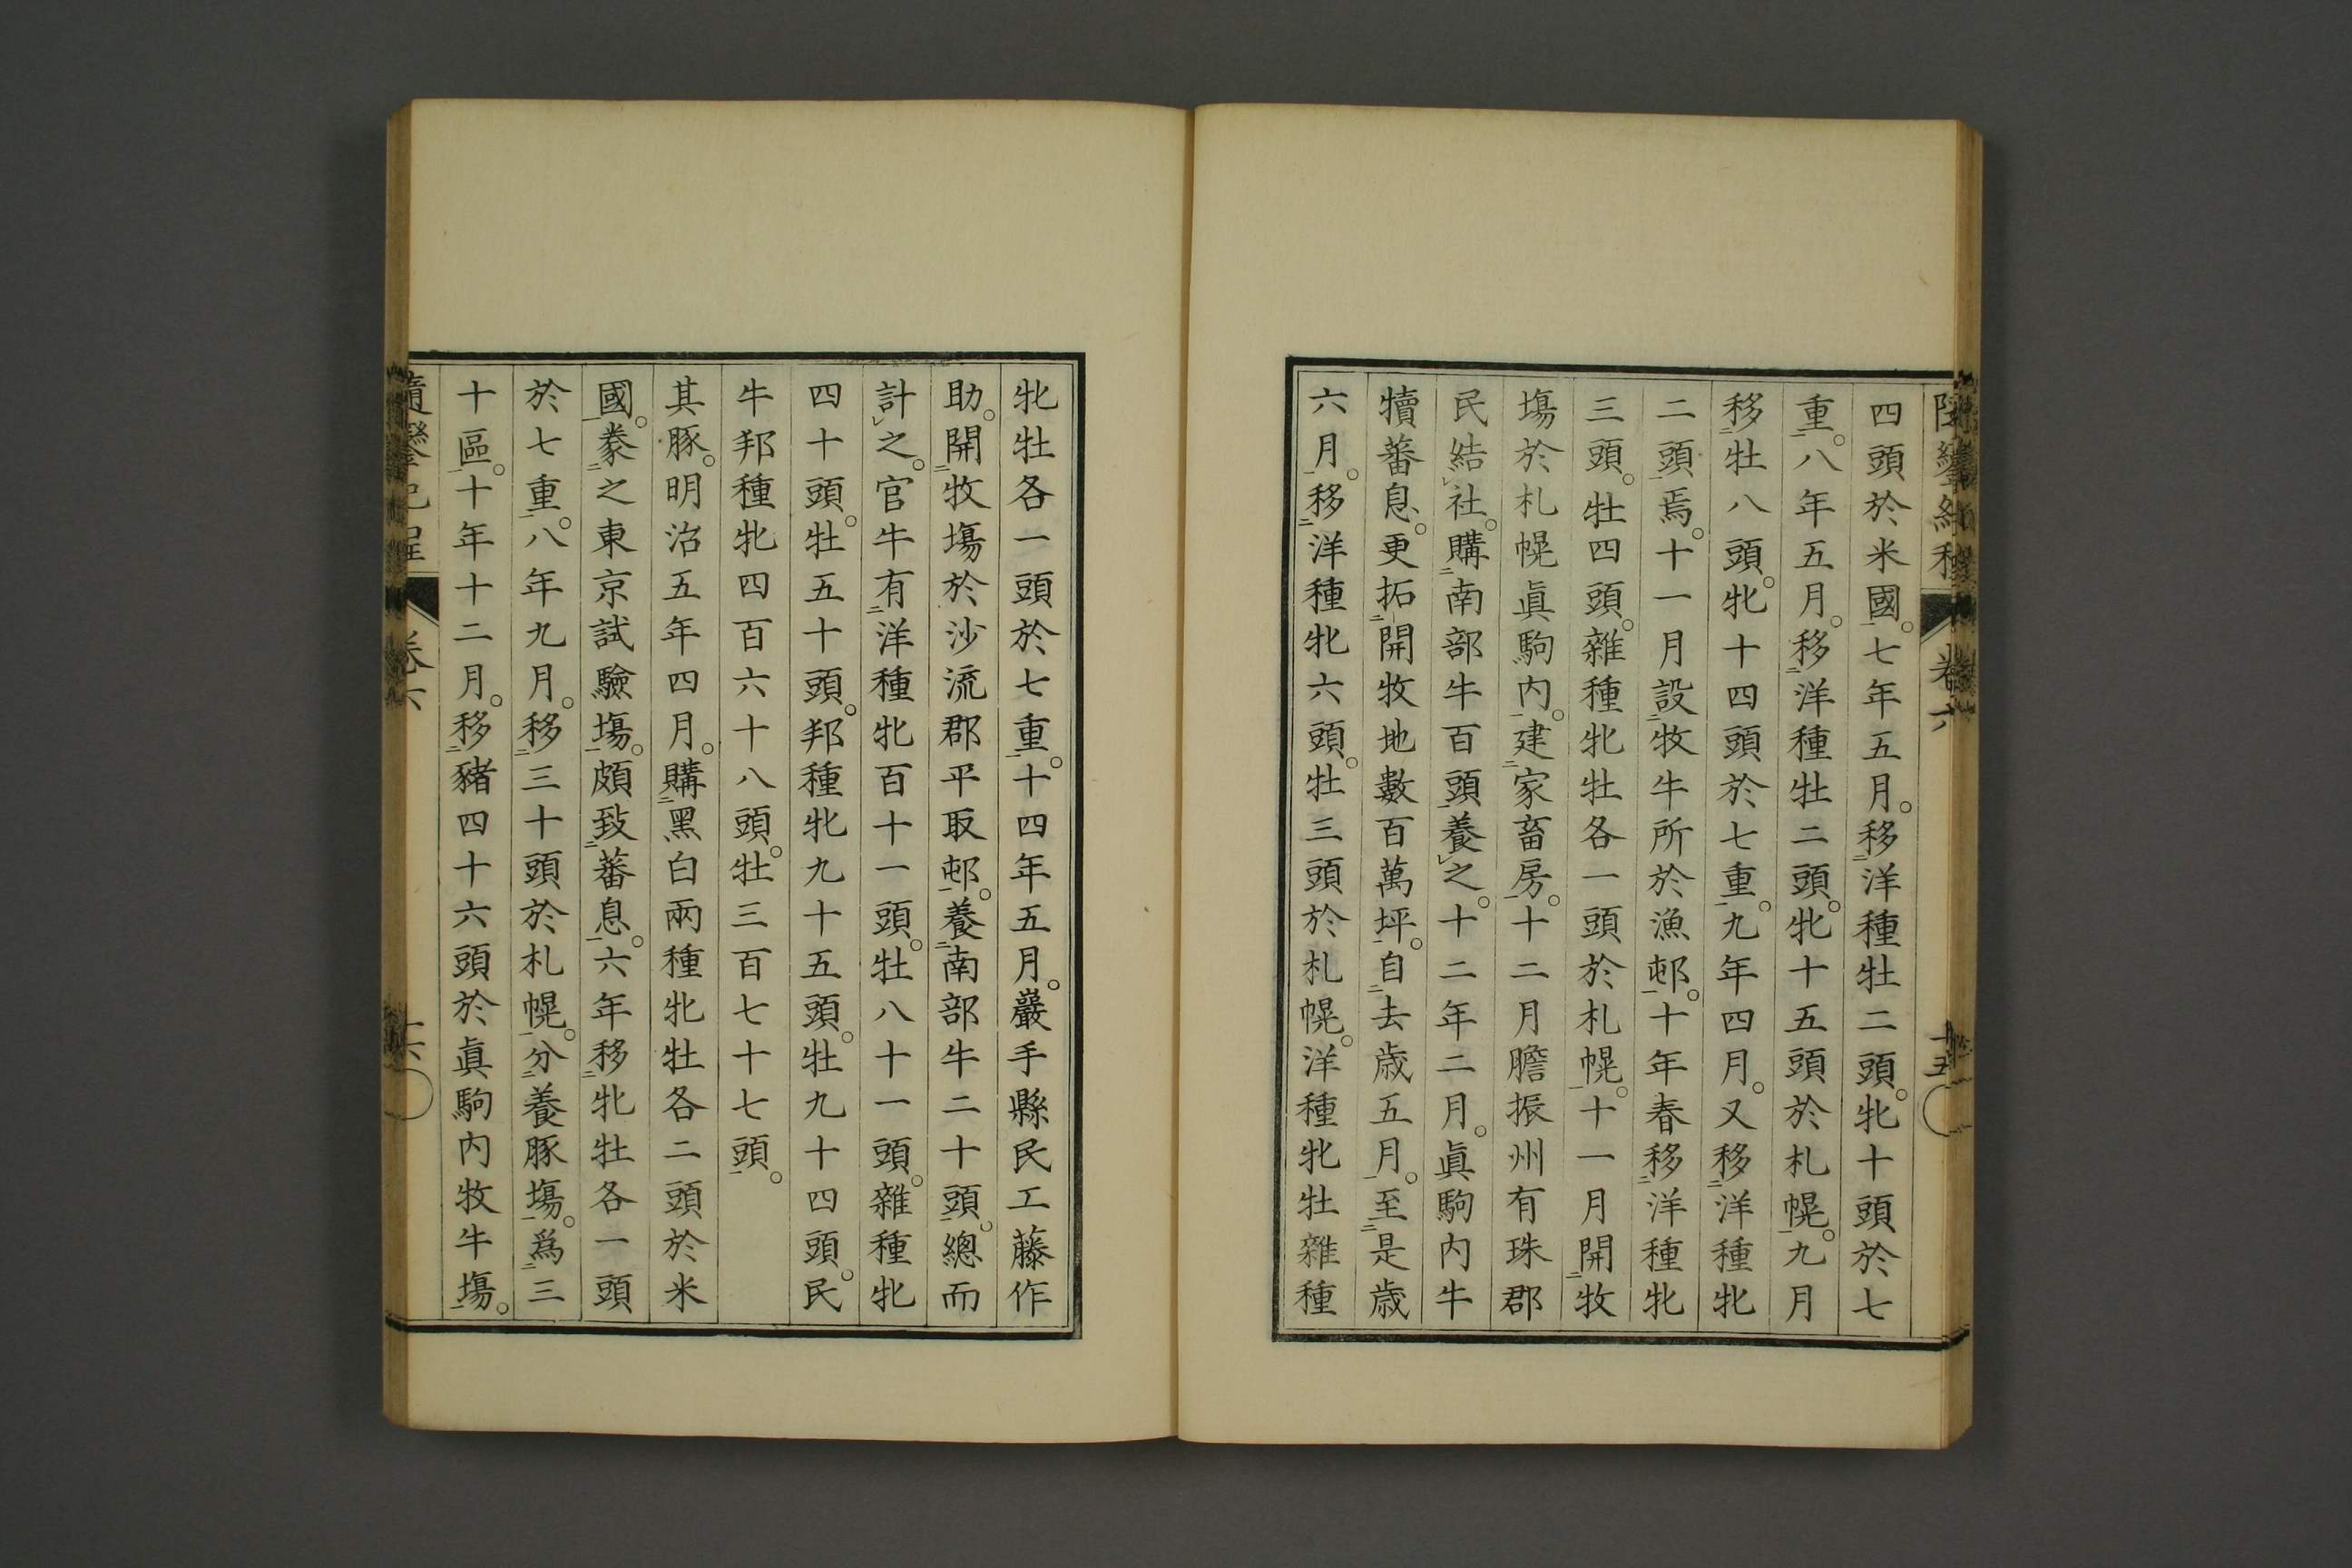 四頭於米國。七年五月。移洋種牡二頭。牝十頭於七
重。八年五月。移洋種牡二頭。牝十五頭於札幌。九月
移牡八頭。牝十四頭於七重。九年四月。又移洋種牝
二頭焉。十一月設牧牛所於漁邨。十年春移洋種牝
三頭。牡四頭。雜種牝牡各一頭於札幌。十一月開牧
塲於札幌眞駒内。建家畜房。十二月膽振州有珠郡
民結社。購南部牛百頭養之。十二年二月。眞駒内牛
犢蕃息。更拓開牧地數百萬坪。自去歳五月。至是歳
六月。移洋種牝六頭。牡三頭於札幌。洋種牝牡雜種
牝牡各一頭於七重。十四年五月。巖手縣民工藤作
助。開牧塲於沙流郡平取邨。養南部牛二十頭。總而
計之。官牛有洋種牝百十一頭。牡八十一頭。雜種牝
四十頭。牡五十頭。邦種牝九十五頭。牡九十四頭。民
牛邦種牝四百六十八頭。牡三百七十七頭。
其豚。明治五年四月。購黑白兩種牝牡各二頭於米
國。豢之東京試驗塲。頗致蕃息。六年移牝牡各一頭
於七重。八年九月。移三十頭於札幌。分養豚塲。爲三
十區。十年十二月。移豬四十六頭於眞駒内牧牛塲。
卷六